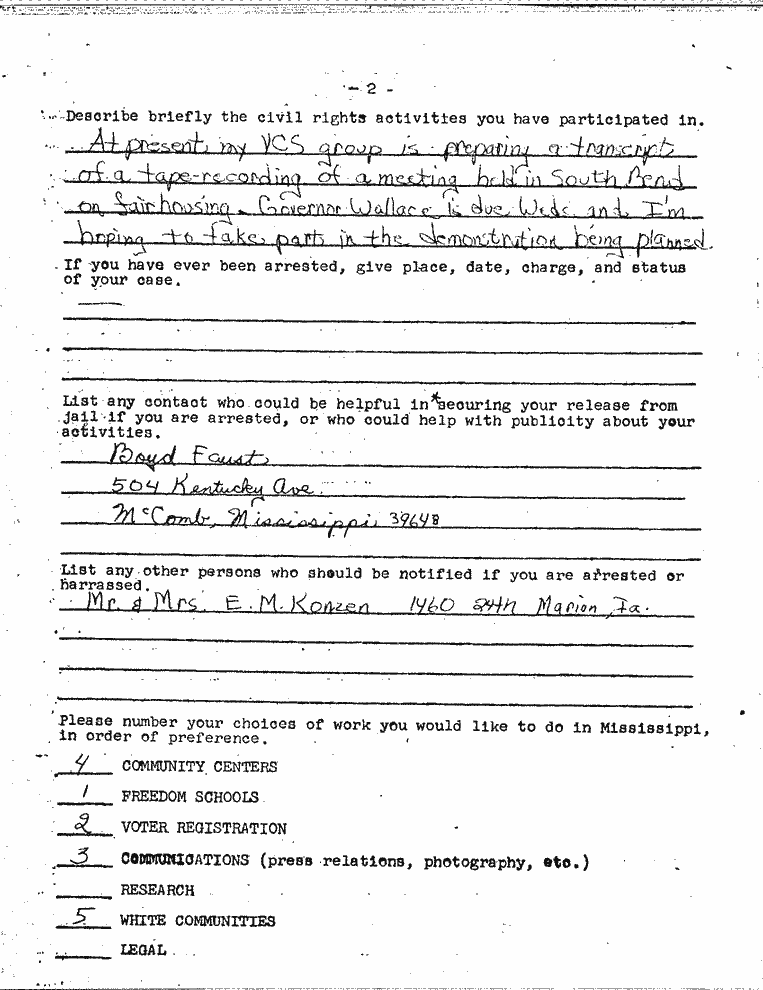 - 2 -
Describe briefly the civil rights activities you have participated in.
At present, my YCS group is preparing a transcript
of a tape-recording of a meeting held in South Bend
on fair housing. Governor Wallace is due Weds. and I'm
hoping to take part in the demonstration being planned.
If you have ever been arrested, give place, date, charge, and status
of your case.
—
List any contact who could be helpful in *securing your release from
jail if you are arrested, or who could help with publicity about your
activities.
Boyd Faust
504 Kentucky Ave.
McComb, Mississippi 39648
List any other persons who should be notified if you are arrested or
harrassed.
Mr. & Mrs. E. M. Konzen 1460 24th Marion, Ia.
Please number your choices of work you would like to do in Mississippi,
in order of preference.
4 COMMUNITY CENTERS
1 FREEDOM SCHOOLS
2 VOTER REGISTRATION
3 COMMUNICATIONS (press relations, photography, etc.)
RESEARCH
5 WHITE COMMUNITIES
LEGAL